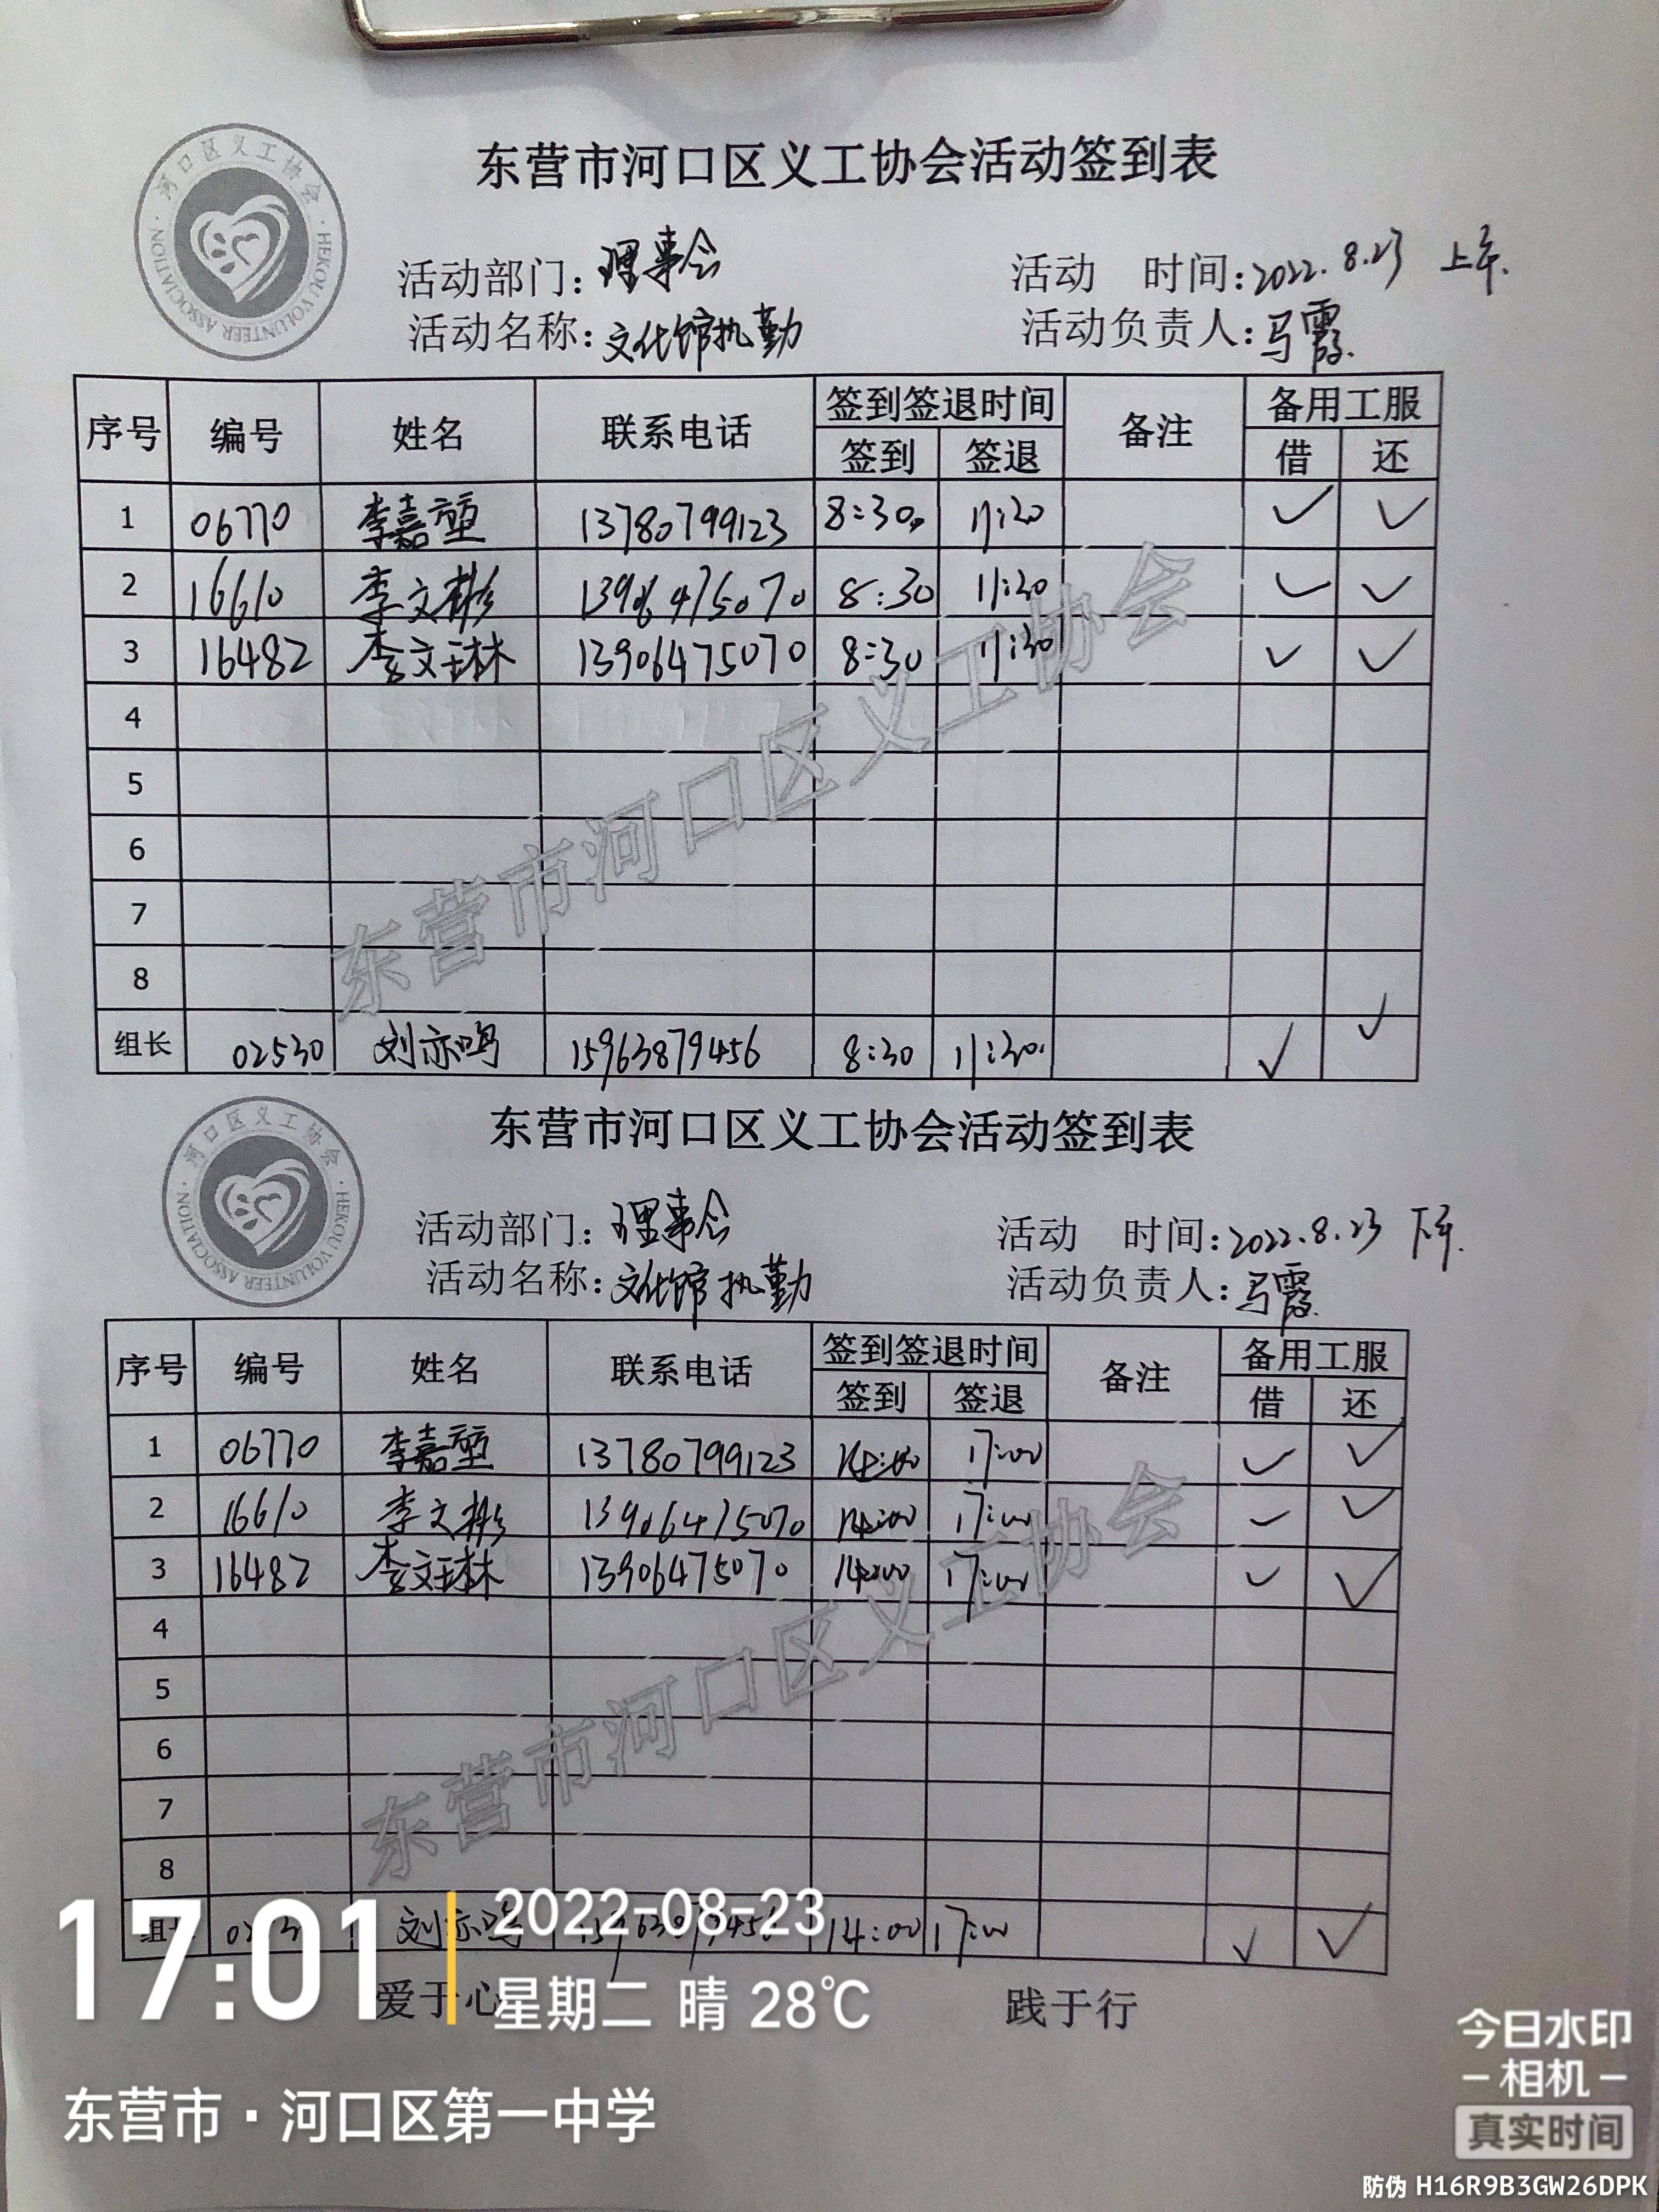 东营市河口区义工协会活动签到表
河口区义工协会
HEKOU VOLUNTEER ASSOCIATION
活动部门：理事会 活动 时间：2022.8.23 上午.
活动名称：文化馆执勤 活动负责人：马霞.
序号 编号 姓名 联系电话 签到签退时间 备注 备用工服
签到 签退 借 还
1 06770 李嘉堃 13780799123 8:30 11:30 ✓ ✓
2 16610 李文彬 13906475070 8:30 11:30 ✓ ✓
3 16482 李文琳 13906475070 8:30 11:30 ✓ ✓
4
5
6
7
8
组长 02530 刘亦鸣 15963879456 8:30 11:30 ✓ ✓
东营市河口区义工协会
东营市河口区义工协会活动签到表
河口区义工协会
HEKOU VOLUNTEER ASSOCIATION
活动部门：理事会 活动 时间：2022.8.23 下午.
活动名称：文化馆执勤 活动负责人：马霞.
序号 编号 姓名 联系电话 签到签退时间 备注 备用工服
签到 签退 借 还
1 06770 李嘉堃 13780799123 14:00 17:00 ✓ ✓
2 16610 李文彬 13906475070 14:00 17:00 ✓ ✓
3 16482 李文琳 13906475070 14:00 17:00 ✓ ✓
4
5
6
7
8
组长 刘亦鸣 15963879456 14:00 17:00 ✓ ✓
东营市河口区义工协会
爱于心 践于行
17:01
2022-08-23
星期二 晴 28℃
东营市·河口区第一中学
今日水印
-相机-
真实时间
防伪 H16R9B3GW26DPK